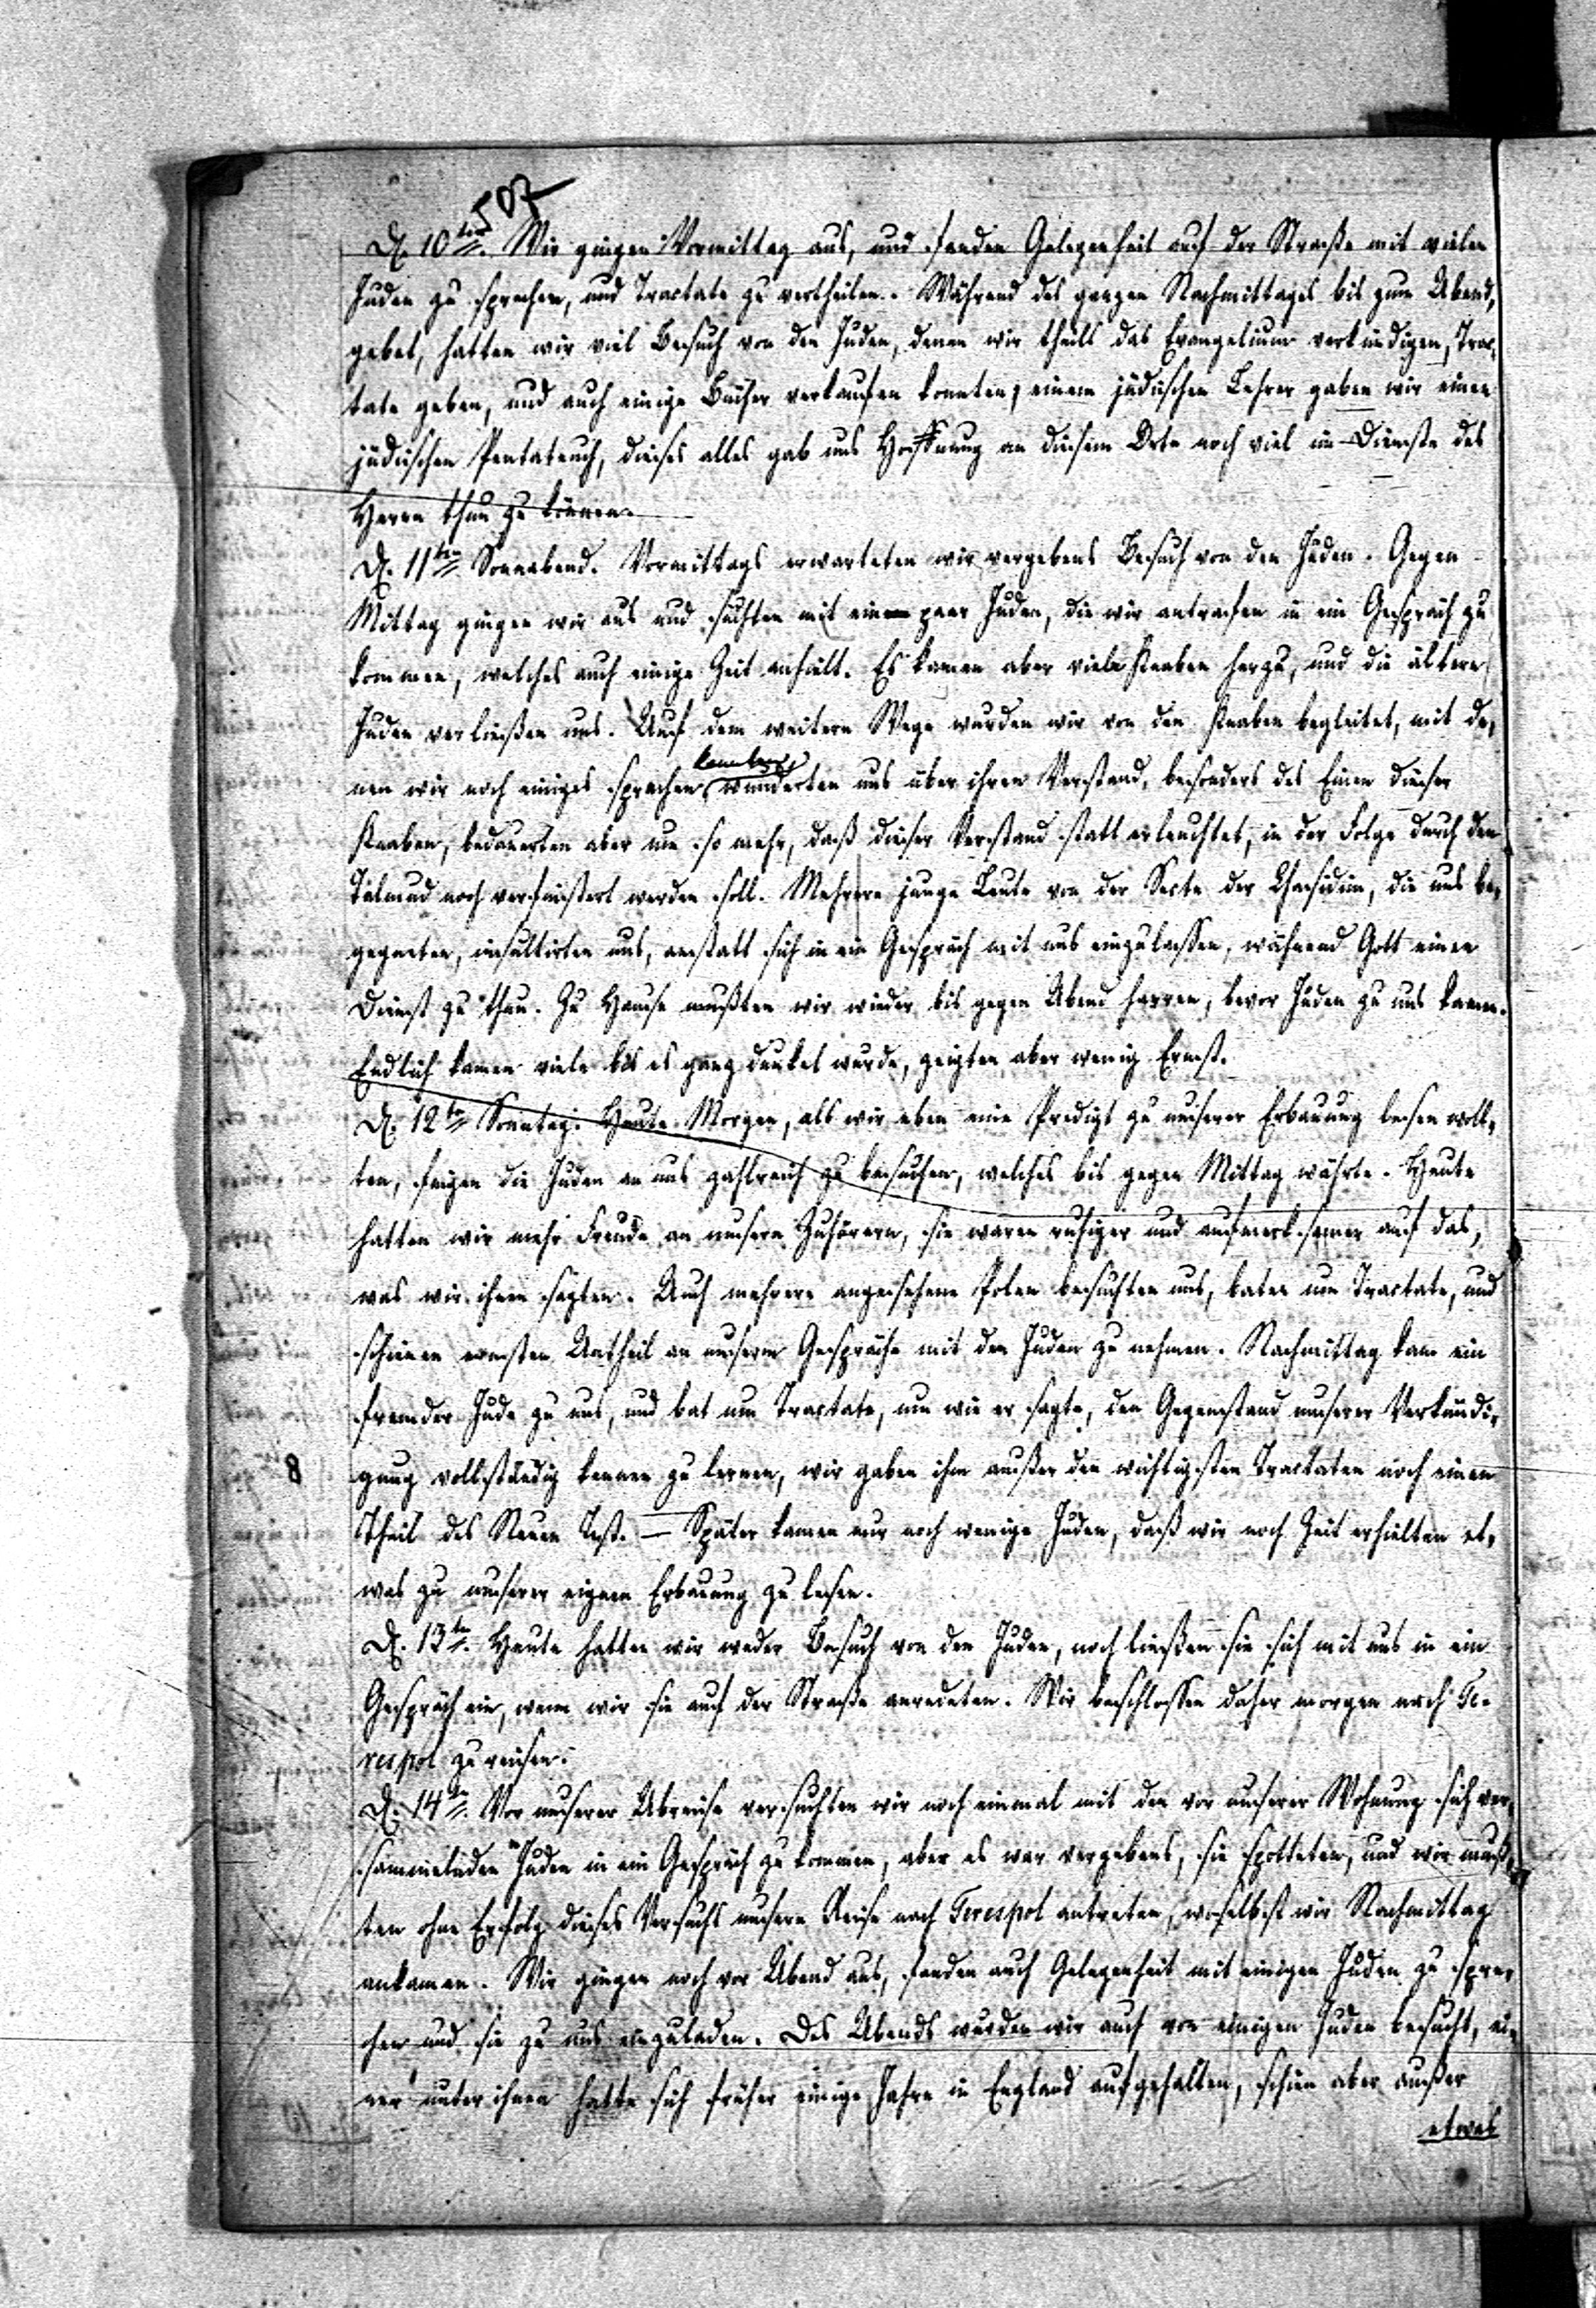 507
D. 10ten. Wir gingen Vormittag aus, und fanden Gelegenheit auf der Straße mit vielen
Juden zu sprechen, und Tractate zu vertheilen. Während des ganzen Nachmittages bis zum Abend„
gebet, hatten wir viel Besuch von den Juden, denen wir theils das Evangelium verkündigen, Trac„
tate geben, und auch einige Bücher verkaufen konnten, einem jüdischen Lehrer gaben wir einen
jüdischen Pentateuch, dieses alles gab uns Hoffnung an diesem Orte noch viel im Dienste des
Herrn thun zu können.
D. 11ten Sonnabend. Vormittags erwarteten wir vergebens Besuch von den Juden. Gegen
Mittag gingen wir aus und suchten mit ein paar Juden, die wir antrafen in ein Gespräch zu
kommen, welches auch einige Zeit anhielt. Es kamen aber viele Knaben herzu, und die ältere
Juden verließen uns. Auf dem weitern Wege wurden wir von den Knaben begleitet, mit de„
nen wir noch einiges sprachen, wunderten uns über ihren Verstand, besonders des Einen dieser
Knaben, bedauerten aber um so mehr, daß dieser Verstand statt erleuchtet, in der Folge durch den
Talmud noch verfinstert werden soll. Mehrere junge Leute von der Secte der Chasidim, die uns be„
gegneten, insultirten uns, anstatt sich in ein Gespräch mit uns einzulassen, wähnend Gott einen
Dienst zu thun. Zu Hause mußten wir wieder bis gegen Abend harren, bevor Juden zu uns kamen.
Endlich kamen viele bis es ganz dunkel wurde, zeigten aber wenig Ernst.
D. 12ten Sonntag. Heute Morgen, als wir eben eine Predigt zu unserer Erbauung lesen woll„
ten, fingen die Juden an uns zahlreich zu besuchen, welches bis gegen Mittag währte. Heute
hatten wir mehr Freude an unsern Zuhörern, sie waren ruhiger und aufmerksamer auf das,
was wir ihnen sagten. Auch mehrere angesehene Polen besuchten uns, baten um Tractate, und
schienen ernsten Antheil an unserm Gespräche mit den Juden zu nehmen. Nachmittag kam ein
fremder Jude zu uns, und bat um Tractate, um wie er sagte, den Gegenstand unserer Verkündi„
8 gung vollständig kennen zu lernen, wir gaben ihm außer den wichtigsten Tractaten noch einen
Theil des Neuen Test. — Später kamen nur noch wenige Juden, daß wir noch Zeit erhielten et„
was zu unserer eignen Erbauung zu lesen.
D. 13ten. Heute hatten wir weder Besuch von den Juden, noch ließen sie sich mit uns in ein
Gespräch ein, wenn wir sie auf der Straße anredeten. Wir beschlossen daher morgen nach Te-
respol zu reisen.
D. 14ten. Vor unserer Abreise versuchten wir noch einmal mit den vor unserer Wohnung sich ver„
sammelnden Juden in ein Gespräch zu kommen, aber es war vergebens, sie spotteten, und wir muß„
ten ohne Erfolg dieses Versuchs unsere Reise nach Terespol antreten, woselbst wir Nachmittag
ankamen. Wir gingen noch vor Abend aus, fanden auch Gelegenheit mit einigen Juden zu spre„
chen und sie zu uns einzuladen. Des Abends wurden wir auch von einigen Juden besucht, ei„
ner unter ihnen hatte sich früher einige Jahre in England aufgehalten, schien aber außer
etwas